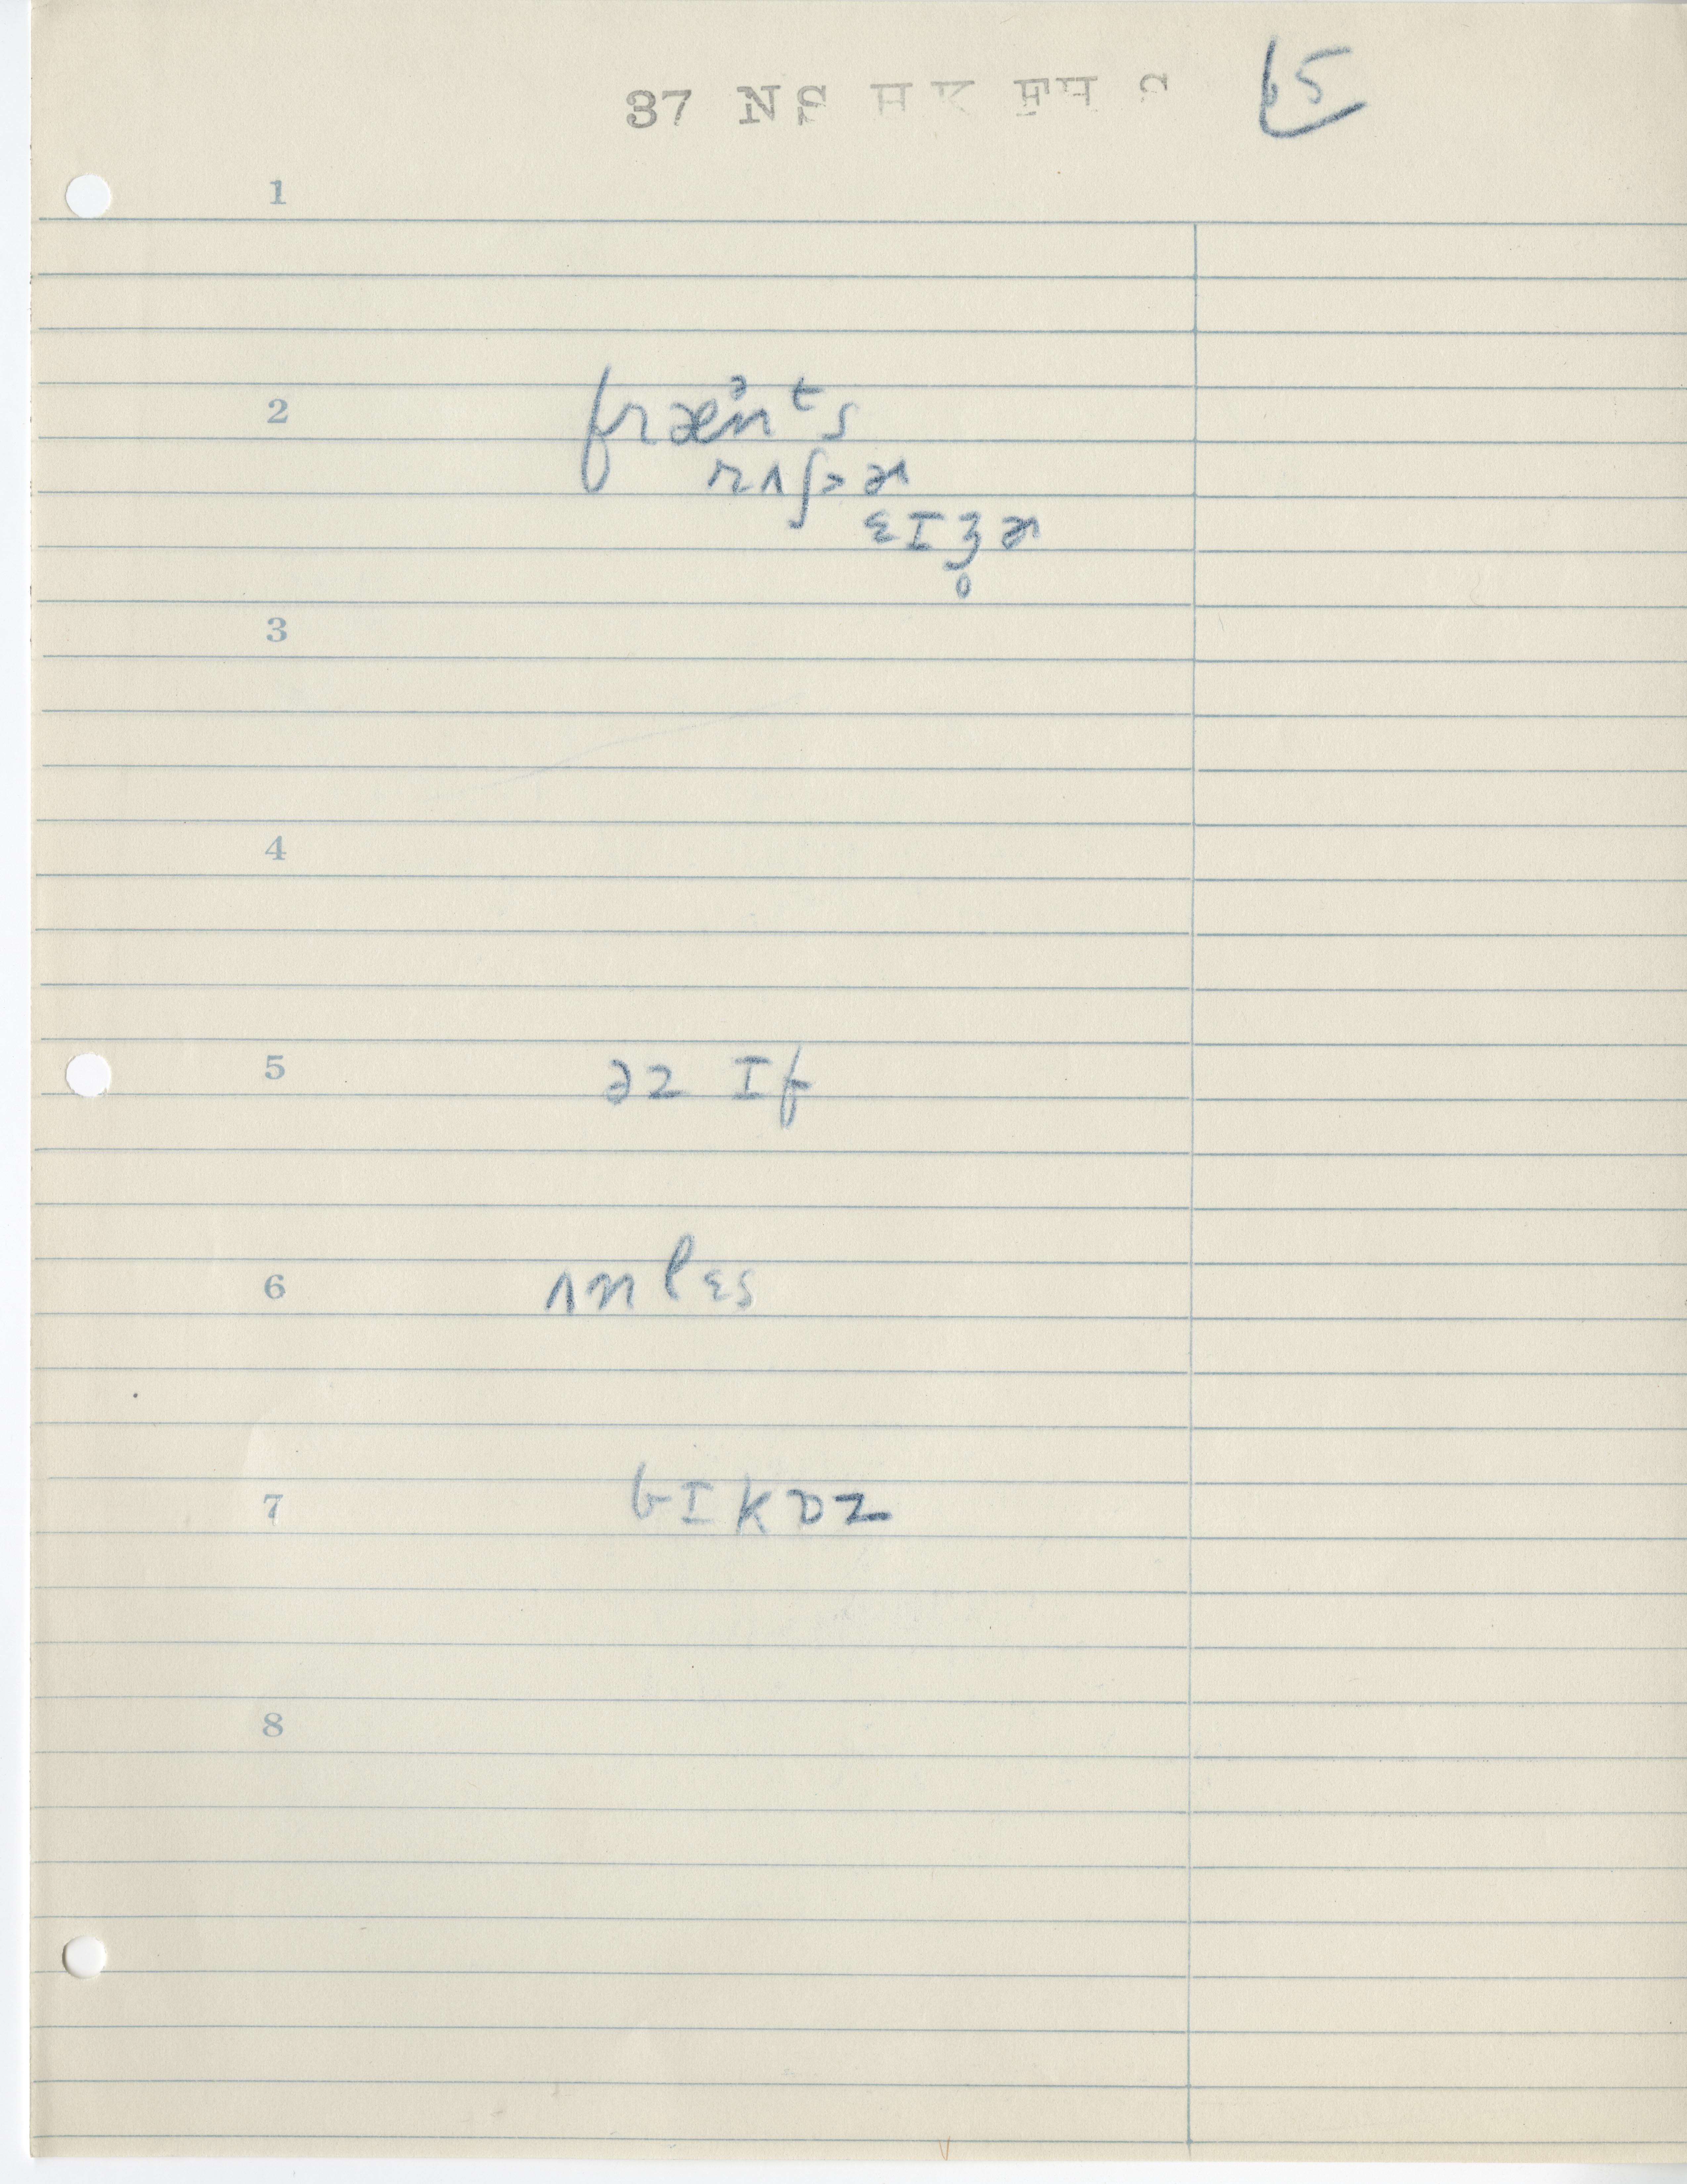 37 NS HK FH S 65
1
2 fræᵊnᵗs
rʌʃ˃ɚ
ɛɪʒ̥ɚ
3
4
5 əz ɪf
6 ʌnlɛs
7 bɪkɒz
8